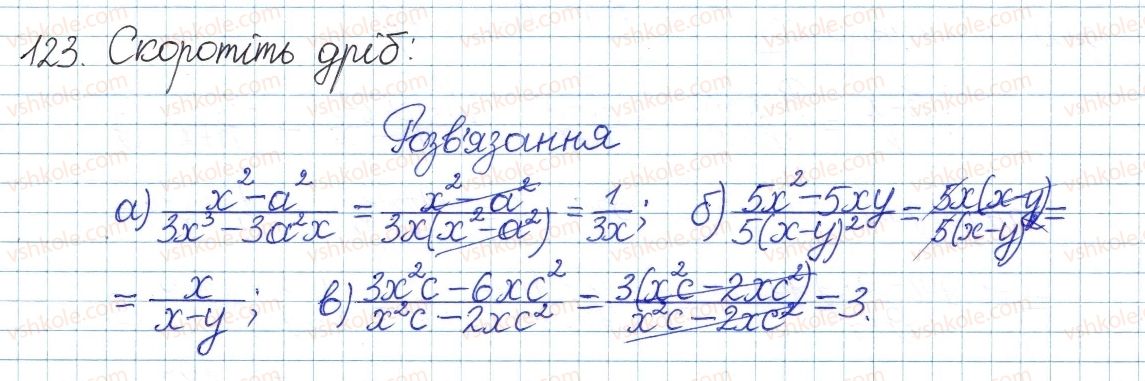 123. Скоротіть дріб:
Розв'язання
а) \frac{x^2-a^2}{3x^3-3a^2x} = \frac{x^2-a^2}{3x(x^2-a^2)} = \frac{1}{3x}; б) \frac{5x^2-5xy}{5(x-y)^2} = \frac{5x(x-y)}{5(x-y)^2} =
= \frac{x}{x-y}; в) \frac{3x^2c-6xc^2}{x^2c-2xc^2} = \frac{3(x^2c-2xc^2)}{x^2c-2xc^2} = 3.